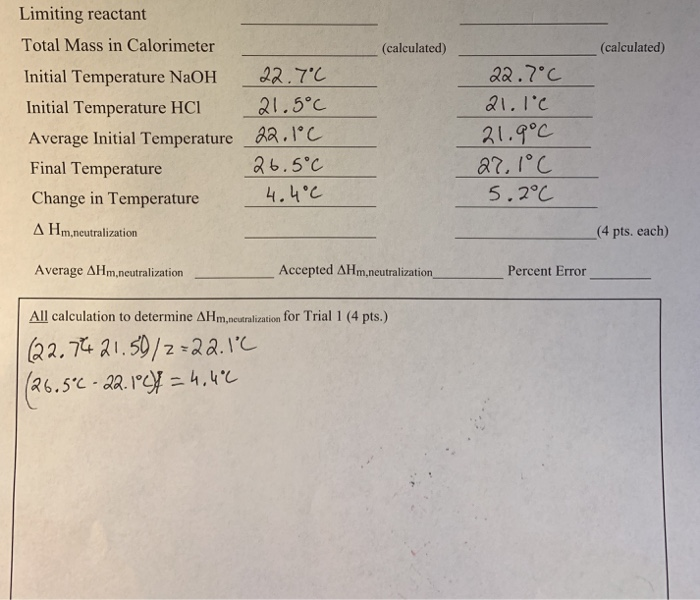 Limiting reactant
Total Mass in Calorimeter (calculated) (calculated)
Initial Temperature NaOH 22.7°C 22.7°C
Initial Temperature HCl 21.5°C 21.1°C
Average Initial Temperature 22.1°C 21.9°C
Final Temperature 26.5°C 27.1°C
Change in Temperature 4.4°C 5.2°C
Δ Hm,neutralization (4 pts. each)
Average ΔHm,neutralization Accepted ΔHm,neutralization Percent Error
All calculation to determine ΔHm,neutralization for Trial 1 (4 pts.)
(22.7+ 21.5)/2=22.1°C
(26.5°C - 22.1°C) = 4.4°C